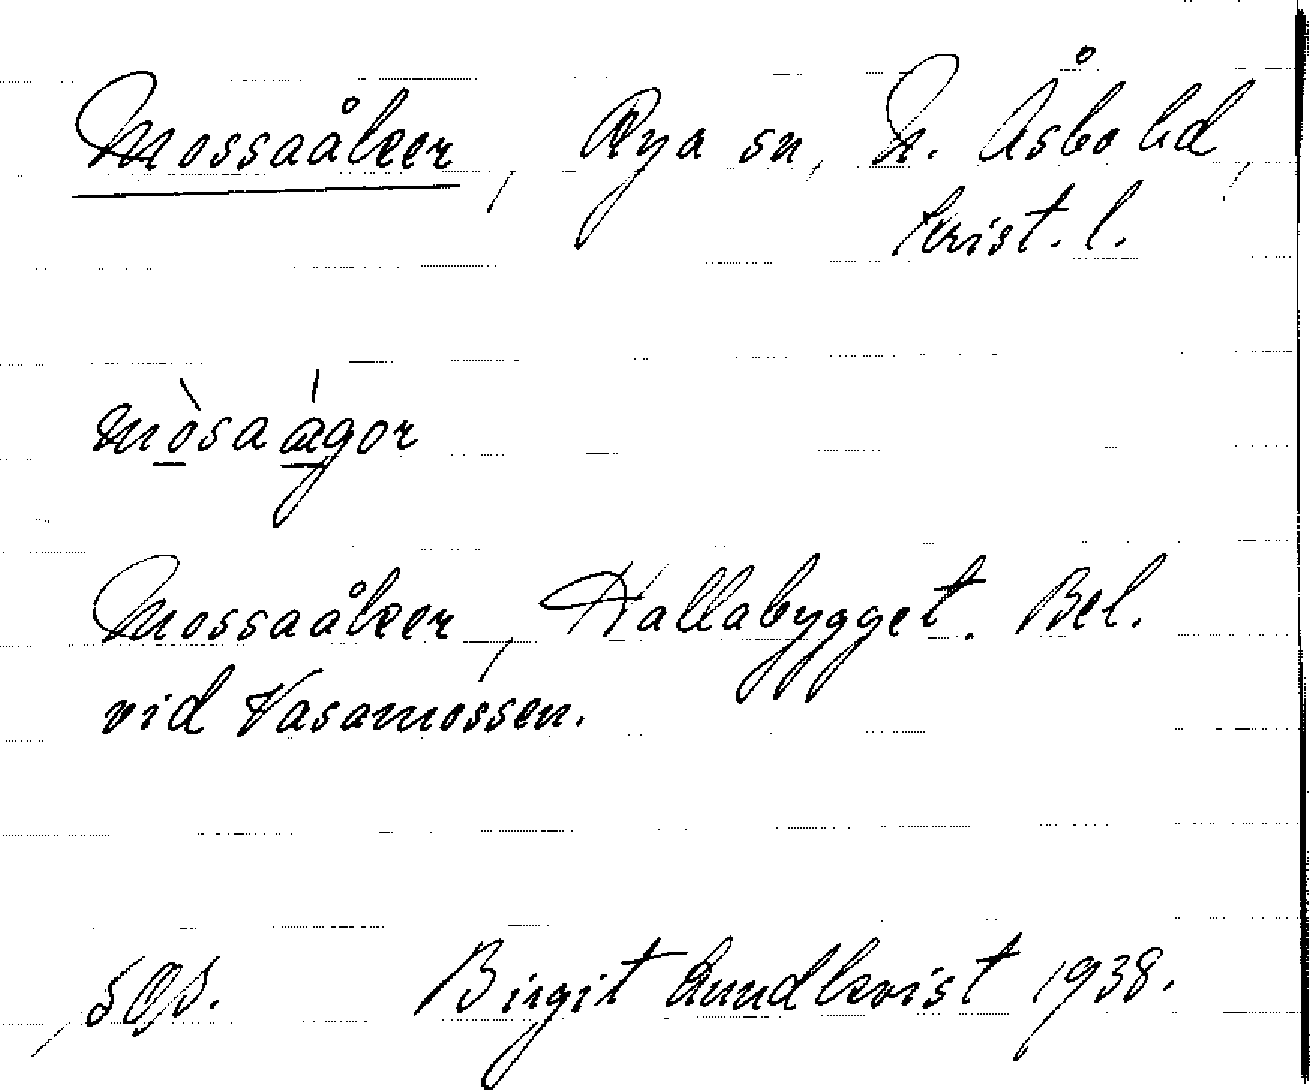 Mossaåker, Rya sn, N. Åsbo hd,
Krist. l.
mòsaágor
Mossaåker, Hallabygget. Bel.
vid Vasamossen.
Birgit Lundkvist 1938.